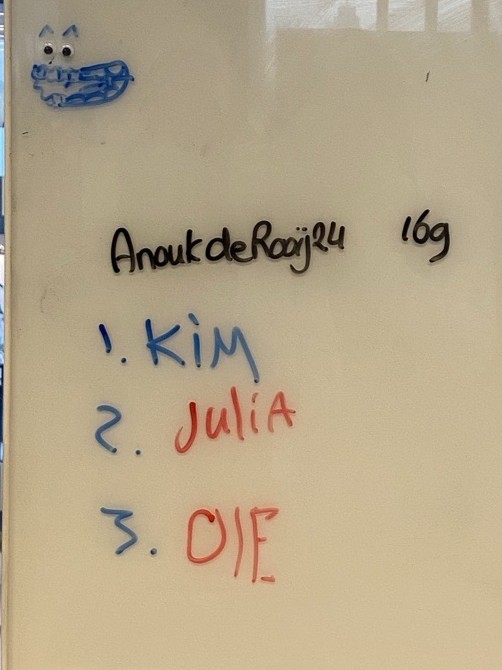 AnoukdeRooij24 16g
1. KiM
2. JuliA
3. OlE